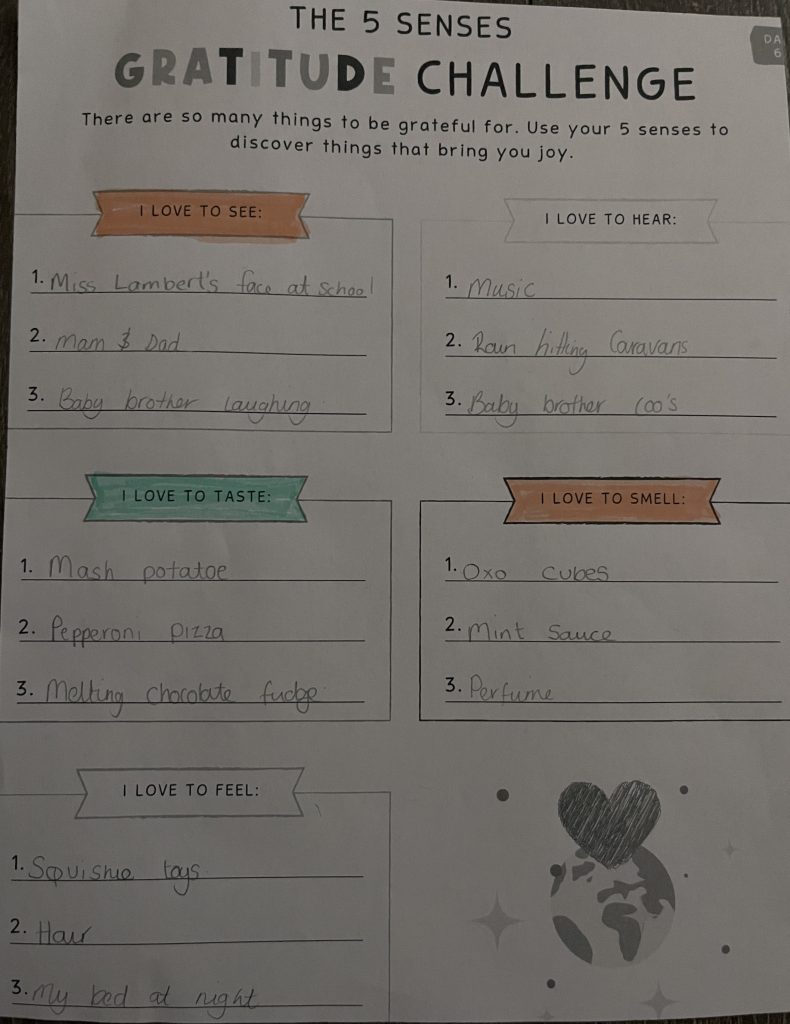 THE 5 SENSES
GRATITUDE CHALLENGE
DA
6
There are so many things to be grateful for. Use your 5 senses to
discover things that bring you joy.
I LOVE TO SEE:
1. Miss Lambert's face at school
2. Mam & Dad
3. Baby brother laughing
I LOVE TO HEAR:
1. Music
2. Rain hitting Caravans
3. Baby brother coo's
I LOVE TO TASTE:
1. Mash potatoe
2. Pepperoni pizza
3. Melting chocolate fudge
I LOVE TO SMELL:
1. Oxo cubes
2. Mint Sauce
3. Perfume
I LOVE TO FEEL:
1. Squishie toys
2. Hair
3. My bed at night